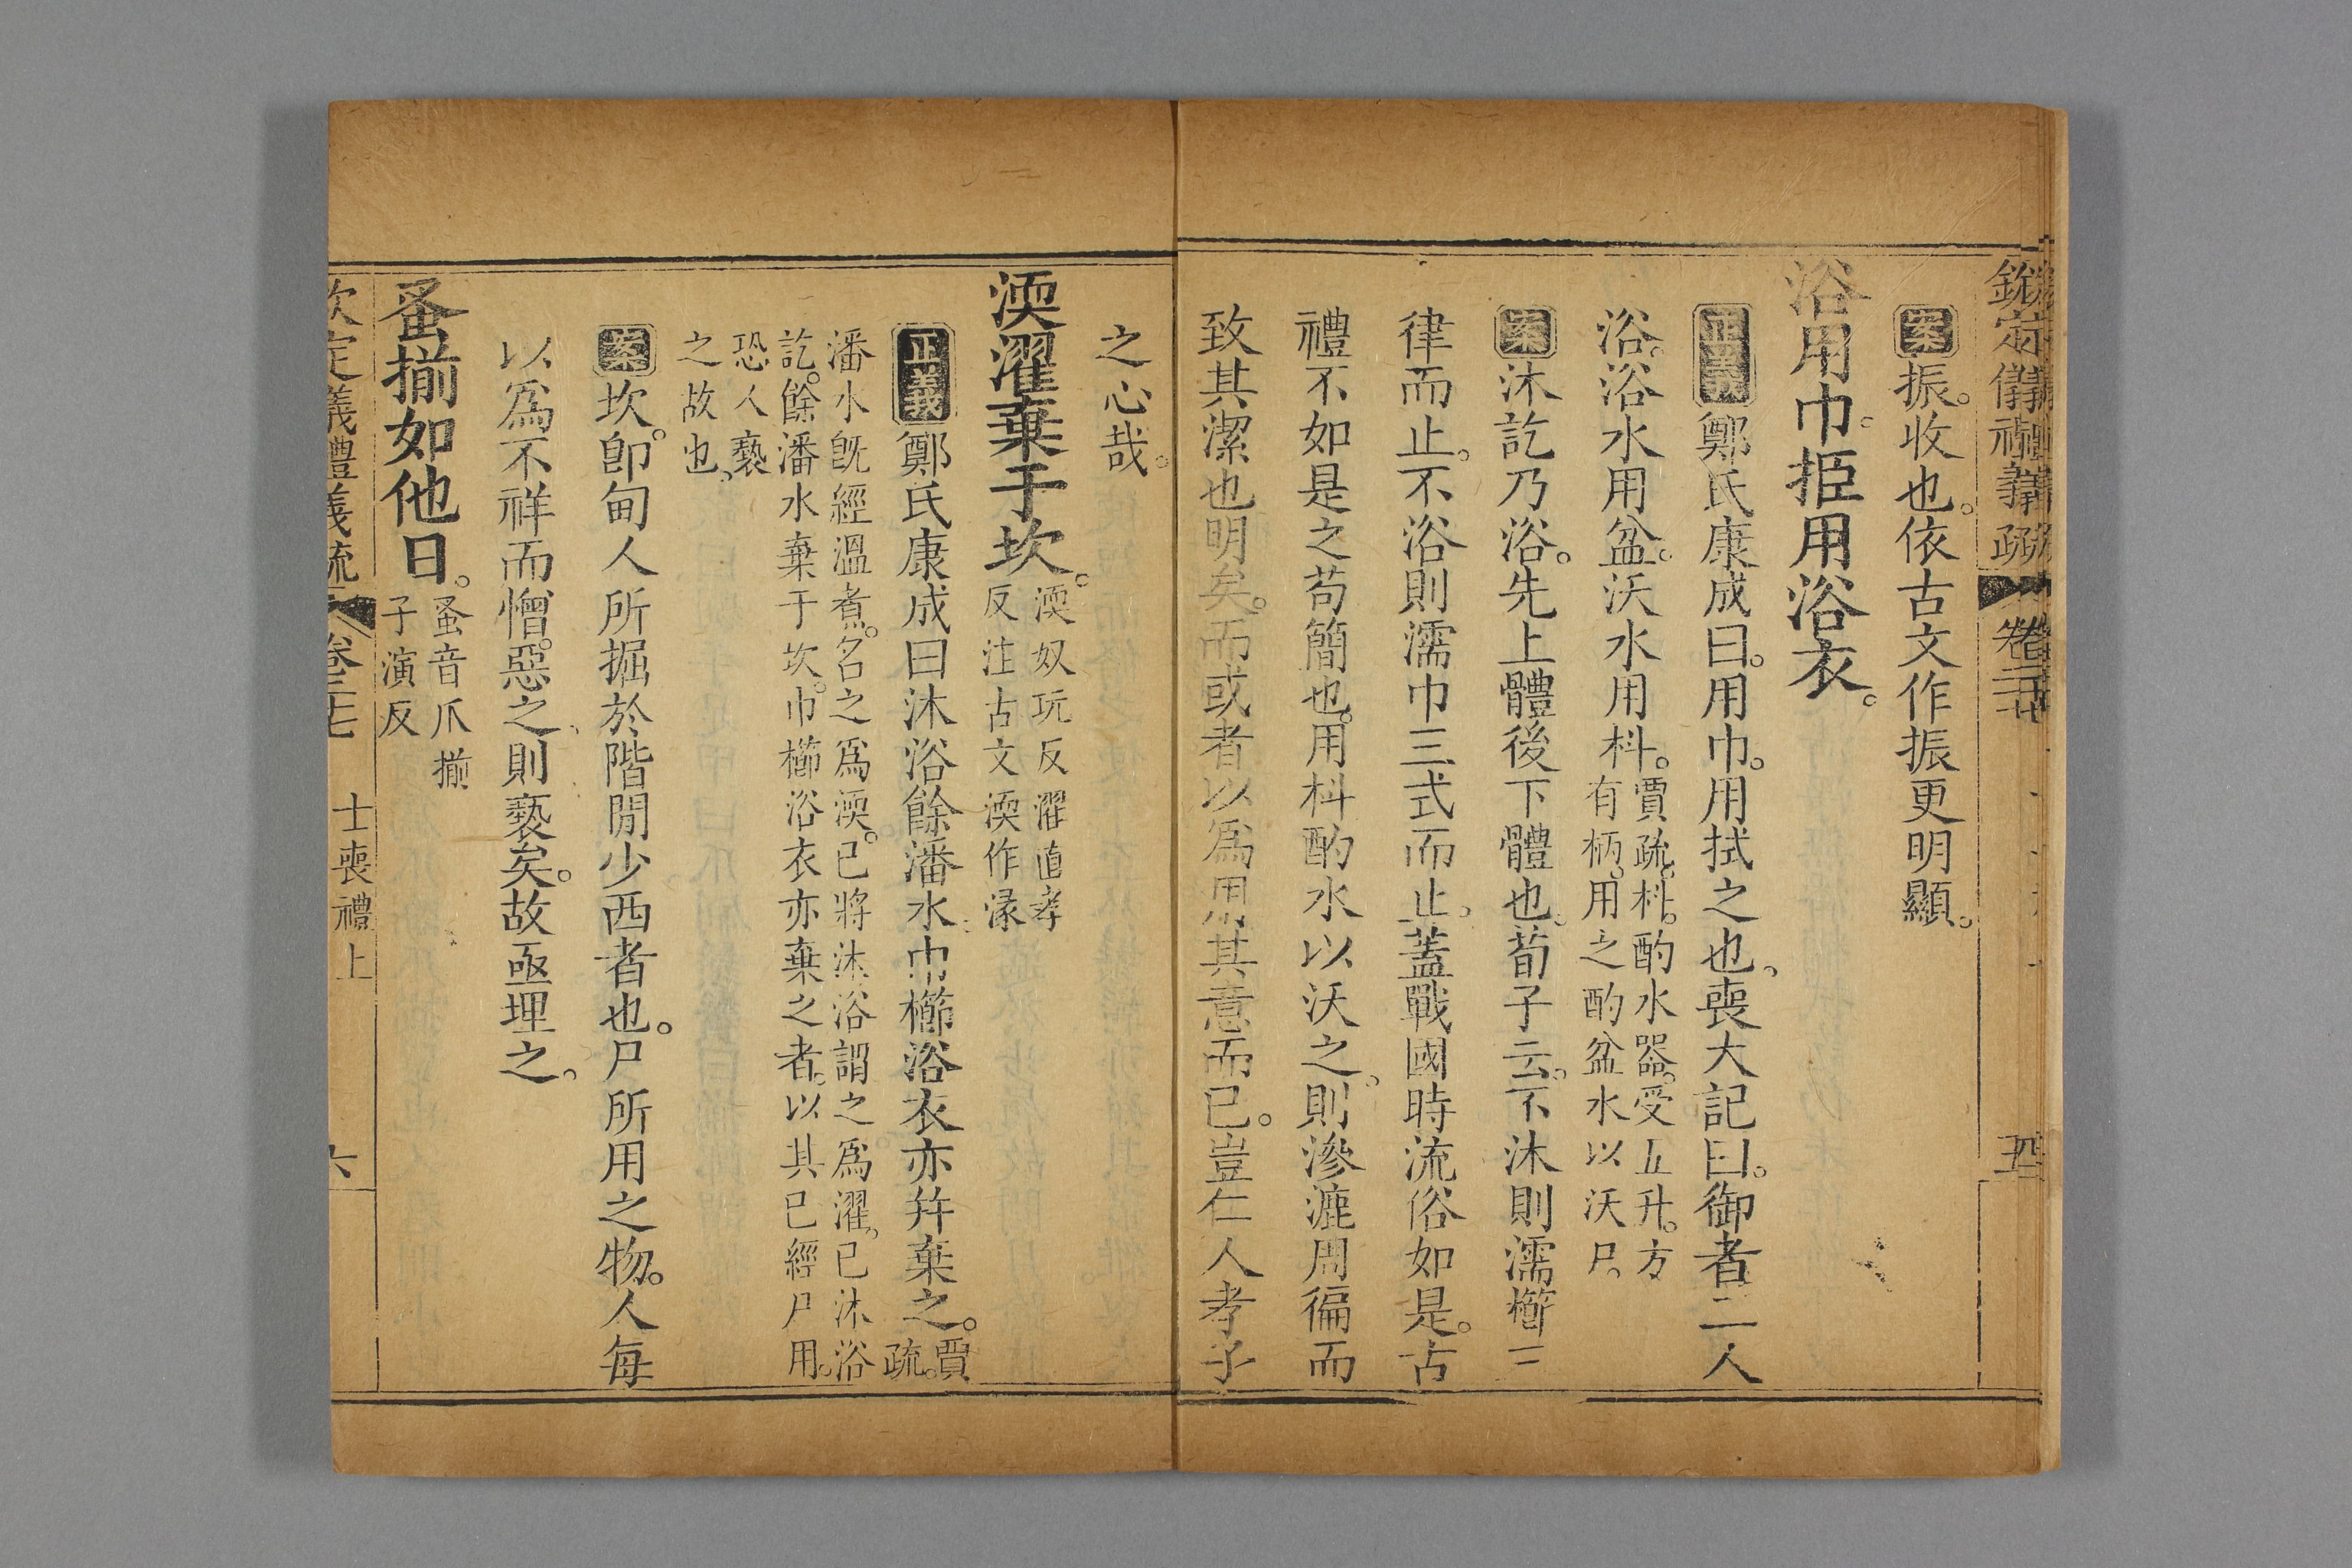 欽定儀禮義疏 卷二十七 五
案振。收也。依古文作振更明顯。
浴用巾。挋用浴衣。
正義鄭氏康成曰。用巾。用拭之也。喪大記曰。御者二人
浴。浴水用盆。沃水用枓。賈疏。枓。酌水器。受五升。方
有柄。用之酌盆水以沃尸。
案沐訖乃浴。先上體後下體也。荀子云。不沐則濡櫛三
律而止。不浴則濡巾三式而止。蓋戰國時流俗如是。古
禮不如是之苟簡也。用枓酌水以沃之。則滲漉周徧而
致其潔也明矣。而或者以爲用其意而已。豈仁人孝子
之心哉。
渜濯棄于坎。渜奴玩反濯直孝
反注古文渜作湪
正義鄭氏康成曰沐浴餘潘水巾櫛浴衣亦幷棄之。賈疏。
潘水旣經溫煮。名之爲渜。已將沐浴謂之爲濯。已沐浴
訖。餘潘水棄于坎。巾櫛浴衣亦棄之者。以其已經尸用。
恐人褻
之故也。
案坎。卽甸人所掘於階閒少西者也。尸所用之物。人每
以爲不祥而憎。惡之則褻矣。故亟埋之。
蚤揃如他日。蚤音爪揃
子演反
欽定儀禮義疏 卷二十七 士喪禮上 六